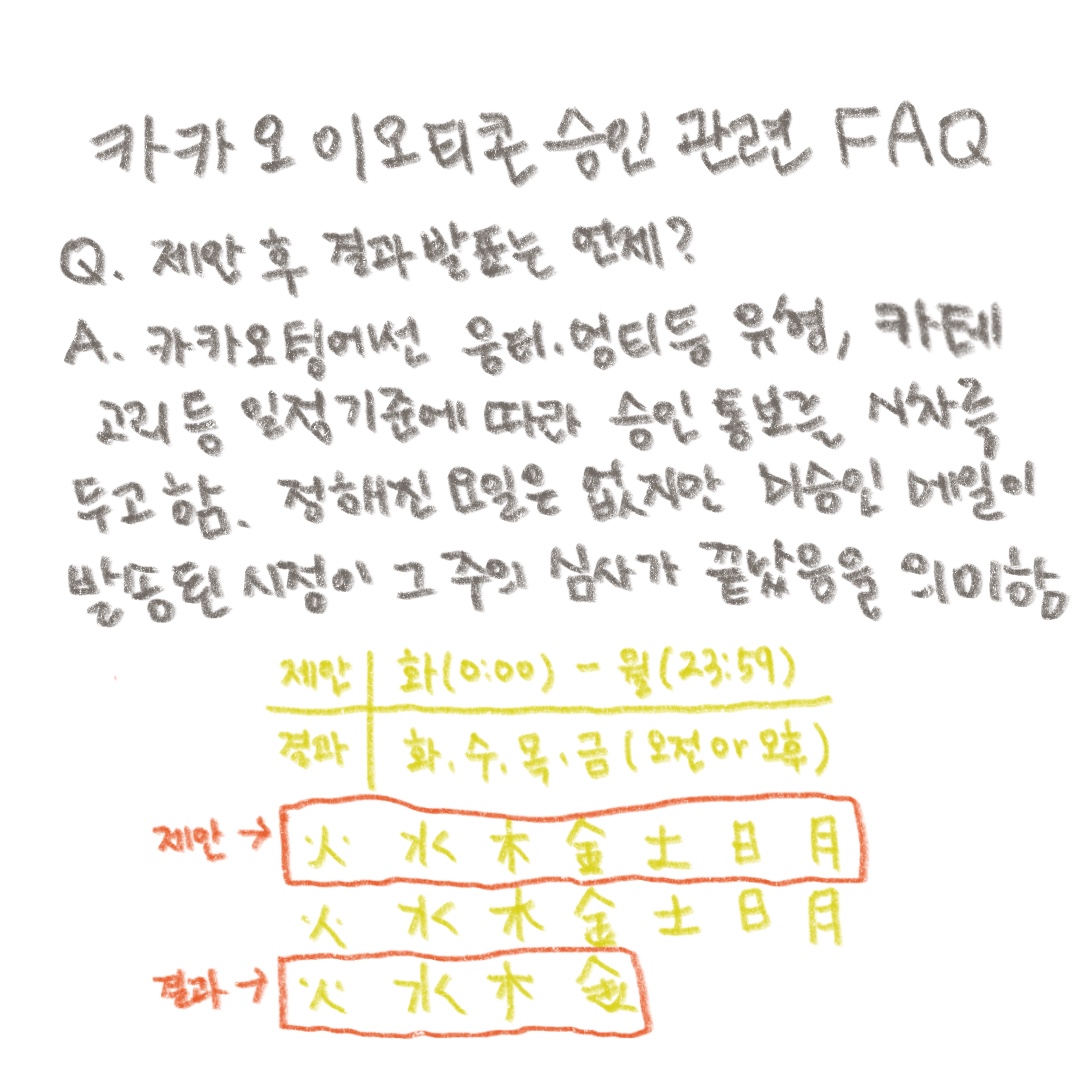 카카오 이모티콘 승인 관련 FAQ
Q. 제안 후 결과발표는 언제?
A. 카카오팀에선 움티.멍티등 유형, 카테
고리등 일정기준에 따라 승인 통보를 시차를
두고 함. 정해진 요일은 없지만 미승인 메일이
발송된 시점이 그 주의 심사가 끝났음을 의미함
제안 화(0:00) - 월(23:59)
결과 화.수.목.금 (오전 or 오후)
제안 → 火 水 木 金 土 日 月
火 水 木 金 土 日 月
결과 → 火 水 木 金